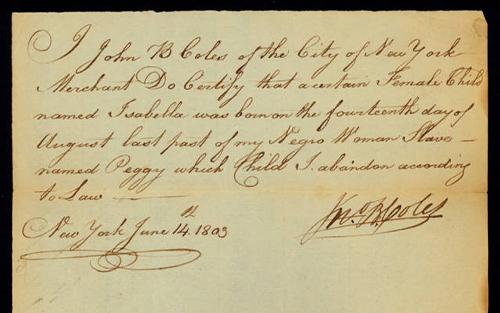 I John B Coles of the City of New York
Merchant Do Certify that a certain Female Child
named Isabella was born on the fourteenth day of
August last past of my Negro Woman Slave —
named Peggy which Child I abandon according
to Law —
New York June 14th 1803
Jno B Coles